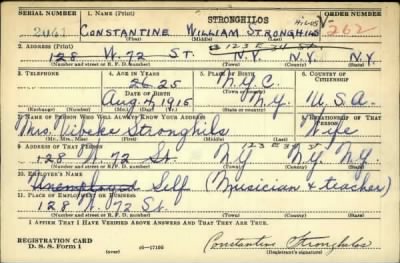 SERIAL NUMBER 1. NAME (Print) STRONGHILOS ORDER NUMBER
2061 CONSTANTINE WILLIAM STRONGHILS 262
(First) (Middle) (Last)
2. ADDRESS (Print) 123 E 34 St.
128 W. 72 ST. N.Y. N.Y. N.Y.
(Number and street or R. F. D. number) (Town) (County) (State)
3. TELEPHONE 4. AGE IN YEARS 5. PLACE OF BIRTH 6. COUNTRY OF CITIZENSHIP
26 25 N.Y.C.
DATE OF BIRTH (Town or county)
Aug. 7 1915 N.Y. U.S.A.
(Exchange) (Number) (Mo.) (Day) (Yr.) (State or country)
7. NAME OF PERSON WHO WILL ALWAYS KNOW YOUR ADDRESS 8. RELATIONSHIP OF THAT PERSON
Mrs. Vibeke Stronghils Wife
(Mr., Mrs., Miss) (First) (Middle) (Last)
9. ADDRESS OF THAT PERSON 123 E 34 St
128 W. 72 St. N.Y. N.Y. N.Y.
(Number and street or R. F. D. number) (Town) (County) (State)
10. EMPLOYER'S NAME
Unemployed Self (Musician & teacher)
11. PLACE OF EMPLOYMENT OR BUSINESS
128 W. 72 St.
(Number and street or R. F. D. number) (Town) (County) (State)
I AFFIRM THAT I HAVE VERIFIED ABOVE ANSWERS AND THAT THEY ARE TRUE.
REGISTRATION CARD
D. S. S. Form 1 16—17105 Constantine Stronghilos
(Registrant's signature)